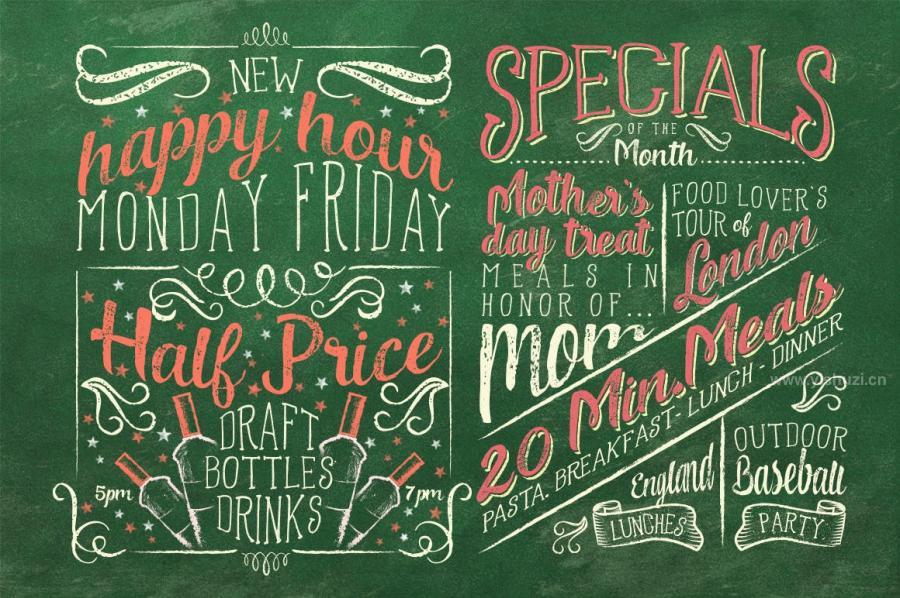 NEW
happy hour
MONDAY FRIDAY
Half Price
DRAFT
BOTTLES
DRINKS
5pm
7pm
SPECIALS
OF THE
Month
Mother's
day treat
MEALS IN
HONOR OF...
Mom
FOOD LOVER'S
TOUR of
London
20 Min. Meals
PASTA. BREAKFAST - LUNCH - DINNER
England
LUNCHES
OUTDOOR
Baseball
PARTY.